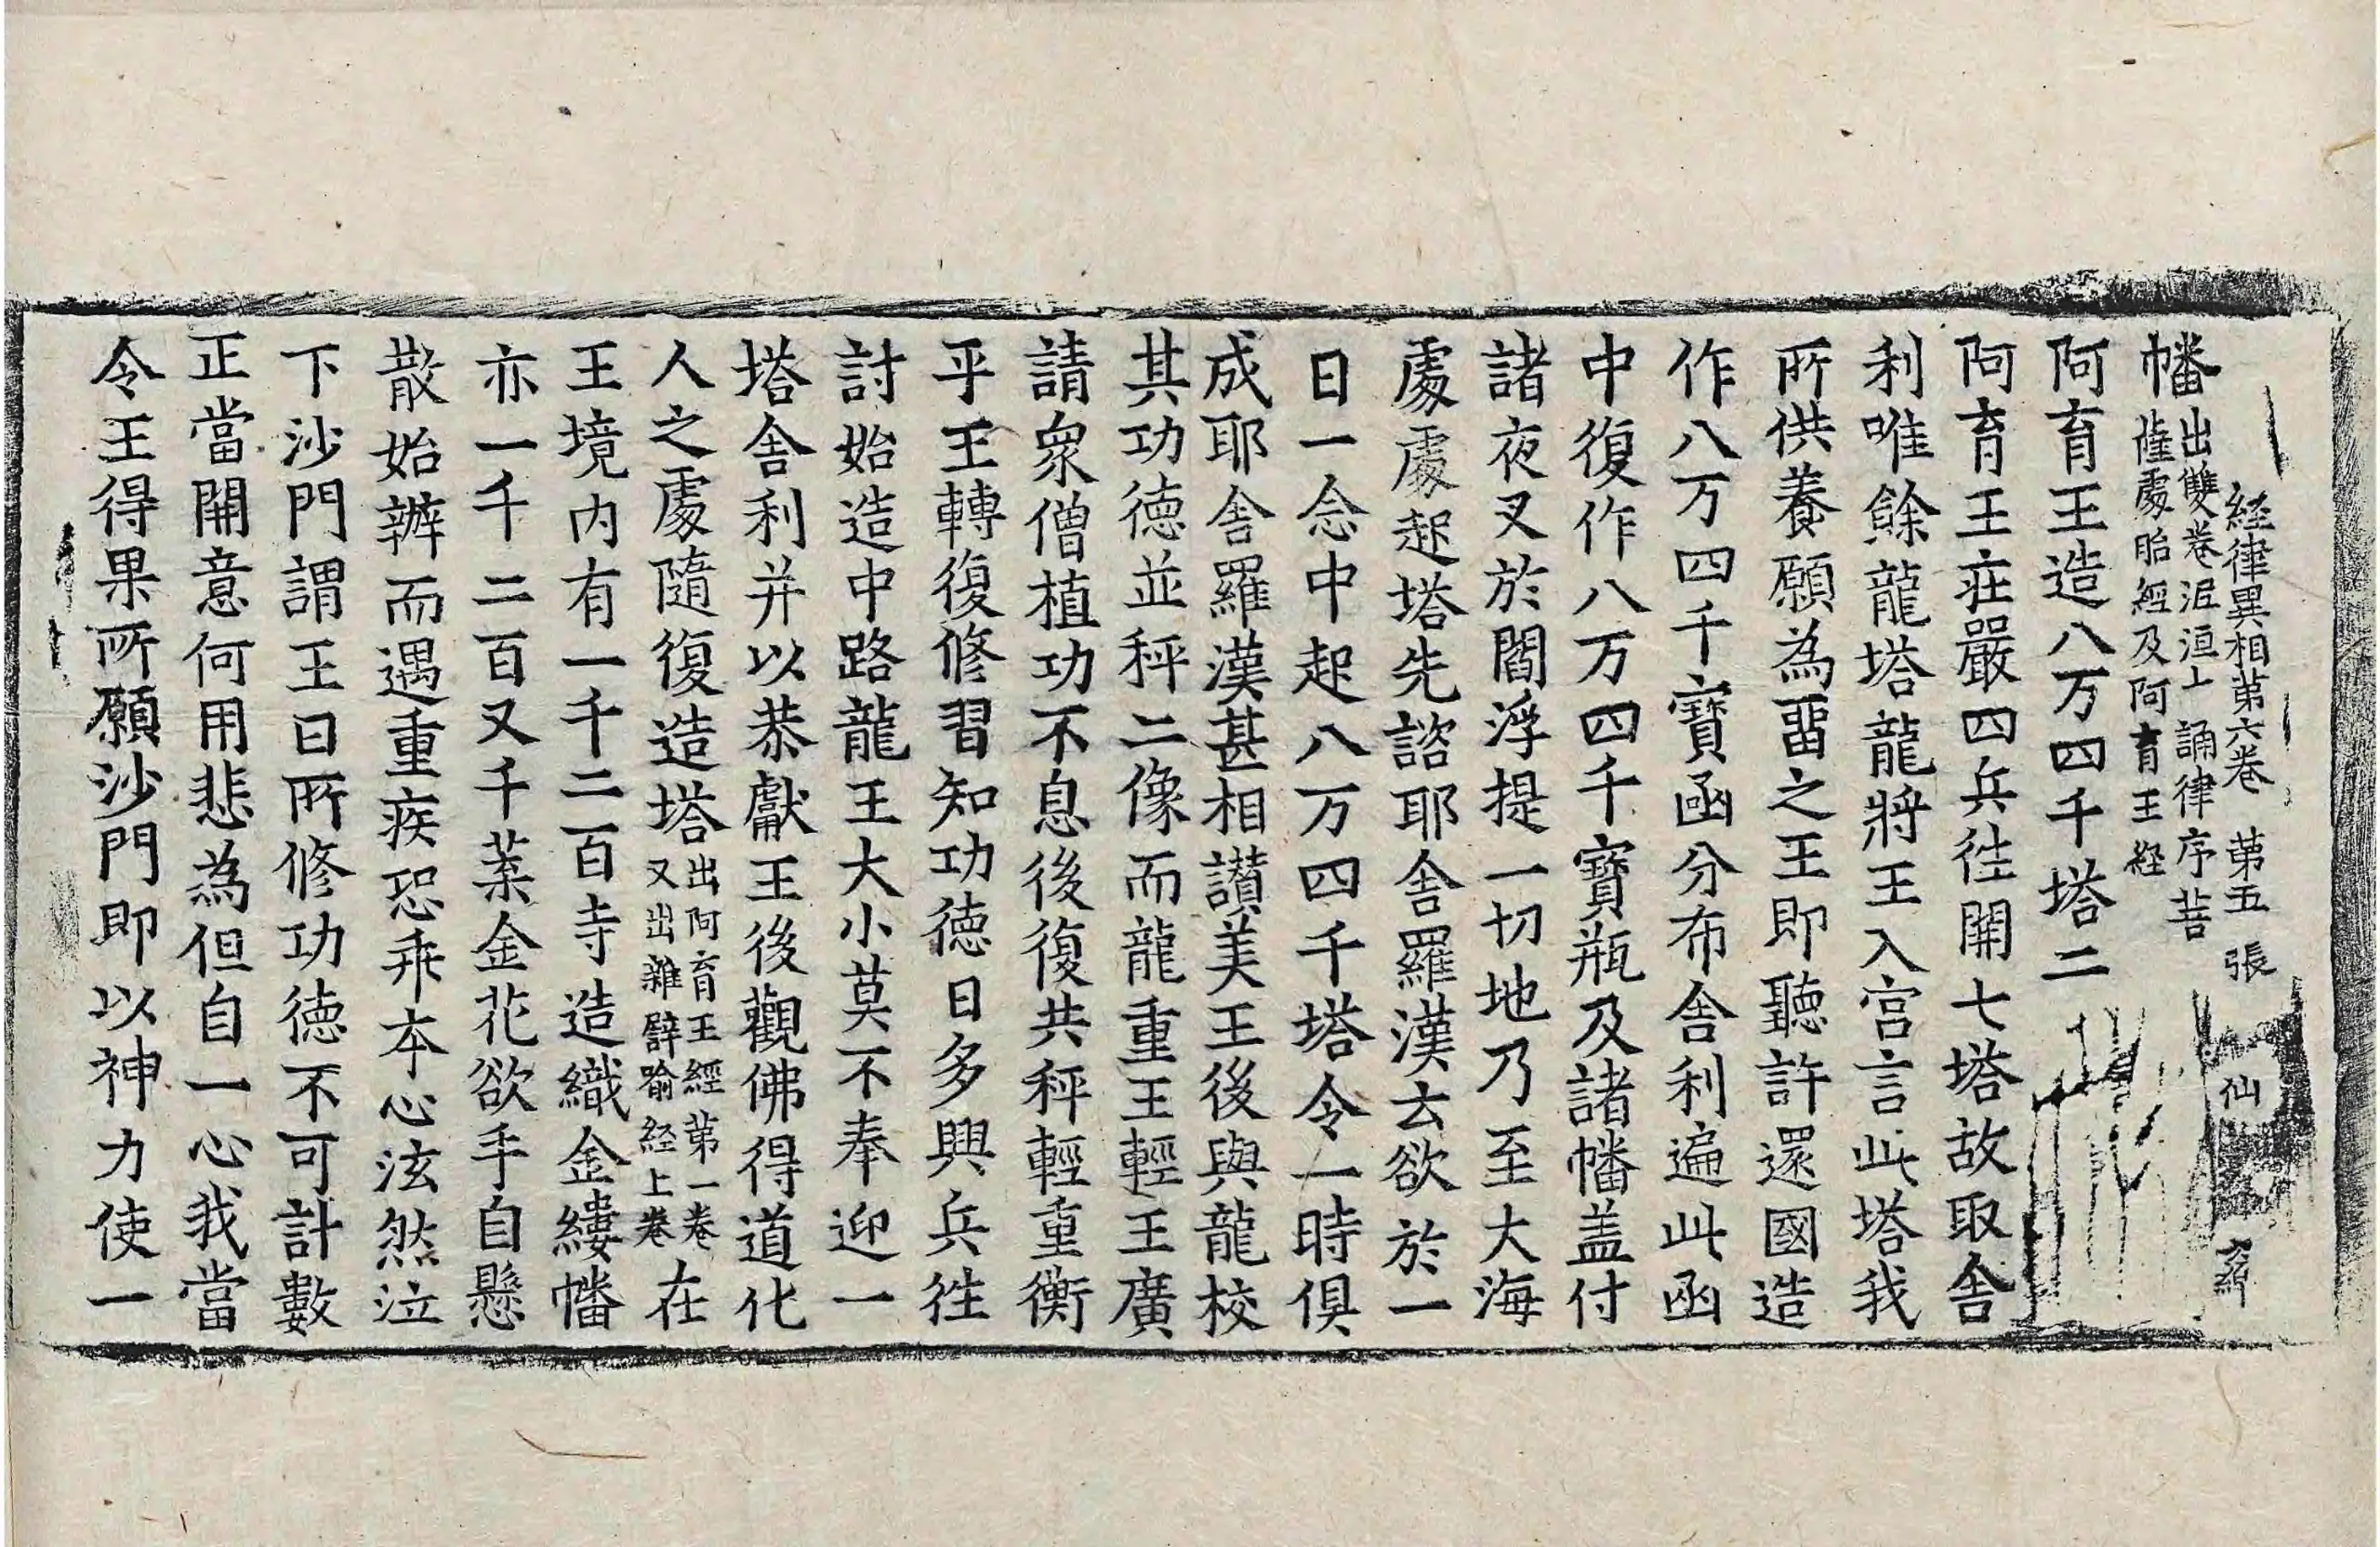 経律異相苐六卷 苐五張 仙
幡出雙卷泥洹上 誦律序菩
薩處胎経及阿育王経
阿育王造八万四千塔二
阿育王莊嚴四兵徃開七塔故取舎
利唯餘龍塔龍將王入宫言此塔我
所供養願為畱之王即聽許還國造
作八万四千寶函分布舎利遍此函
中復作八万四千寶瓶及諸幡盖付
諸夜叉於閻浮提一切地乃至大海
處處起塔先諮耶舎羅漢云欲於一
日一念中起八万四千塔令一時俱
成耶舎羅漢甚相讃美王後與龍校
其功徳並秤二像而龍重王輕王廣
請衆僧植功不息後復共秤輕重衡
乎王轉復修習知功徳日多興兵徃
討始造中路龍王大小莫不奉迎一
塔舎利并以恭獻王後觀佛得道化
人之處隨復造塔出阿育王經苐一卷又出雜譬喻経上卷在
王境内有一千二百寺造織金縷幡
亦一千二百又千葉金花欲手自懸
散始辦而遇重疾恐乖本心泫然泣
下沙門謂王曰所修功徳不可計數
正當開意何用悲為但自一心我當
令王得果所願沙門即以神力使一